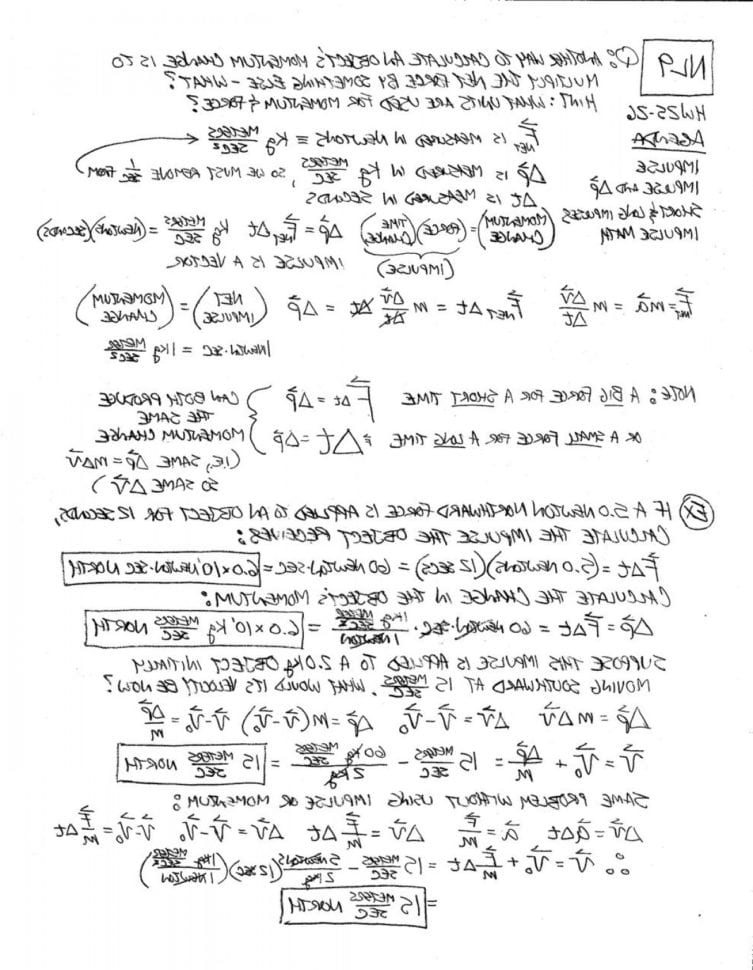 NL9
Q: ANOTHER WAY TO CALCULATE AN OBJECT'S MOMENTUM CHANGE IS TO
MULTIPLY THE NET FORCE BY SOMETHING ELSE - WHAT?
HINT: WHAT UNITS ARE USED FOR MOMENTUM & FORCE?
HW25-26
AGENDA
IMPULSE
IMPULSE AND Δp⃗
SHORT & LONG IMPULSES
IMPULSE MATH
F⃗NET IS MEASURED IN NEWTONS ≡ Kg METERS/SEC²
Δp⃗ IS MEASURED IN Kg METERS/SEC, SO WE MUST REMOVE 1/SEC FROM
Δt IS MEASURED IN SECONDS
(MOMENTUM CHANGE) = (FORCE)(TIME CHANGE) Δp⃗ = F⃗NET Δt Kg METERS/SEC = (NEWTONS)(SECONDS)
(IMPULSE) IMPULSE IS A VECTOR
F⃗NET = ma⃗ = m Δv⃗/Δt F⃗NET Δt = m Δv⃗/Δt Δt = Δp⃗ (NET IMPULSE) = (MOMENTUM CHANGE)
1 NEWTON·SEC = 1 Kg METER/SEC²
NOTE: A BIG FORCE FOR A SHORT TIME F⃗ Δt = Δp⃗ CAN BOTH PRODUCE
THE SAME
OR A SMALL FORCE FOR A LONG TIME F⃗ Δt = Δp⃗ MOMENTUM CHANGE
(I.E., SAME Δp⃗ = mΔv⃗
SO SAME Δv⃗)
EX IF A 5.0 NEWTON NORTHWARD FORCE IS APPLIED TO AN OBJECT FOR 12 SECONDS,
CALCULATE THE IMPULSE THE OBJECT RECEIVES:
F⃗Δt = (5.0 NEWTONS)(12 SECS) = 60 NEWTON·SEC = 6.0 x 10¹ NEWTON·SEC NORTH
CALCULATE THE CHANGE IN THE OBJECT'S MOMENTUM:
Δp⃗ = F⃗Δt = 60 NEWTON·SEC · 1 Kg METER/SEC² / 1 NEWTON = 6.0 x 10¹ Kg METERS/SEC NORTH
SUPPOSE THIS IMPULSE IS APPLIED TO A 2.0 Kg OBJECT INITIALLY
MOVING SOUTHWARD AT 15 METERS/SEC. WHAT WOULD ITS VELOCITY BE NOW?
Δp⃗ = mΔv⃗ Δv⃗ = v⃗-v⃗₀ Δp⃗ = m(v⃗-v⃗₀) v⃗-v⃗₀ = Δp⃗/m
v⃗ = v⃗₀ + Δp⃗/m = 15 METERS/SEC - 60 Kg METERS/SEC / 2 Kg = 15 METERS/SEC NORTH
SAME PROBLEM WITHOUT USING IMPULSE OR MOMENTUM:
Δv⃗ = a⃗Δt a⃗ = F⃗/m Δv⃗ = F⃗/m Δt Δv⃗ = v⃗-v⃗₀ v⃗-v⃗₀ = F⃗/m Δt
∴ v⃗ = v⃗₀ + F⃗/m Δt = 15 METERS/SEC - 5 NEWTONS/2 Kg (12 SEC)(1 Kg METER/SEC² / 1 NEWTON)
= 15 METERS/SEC NORTH